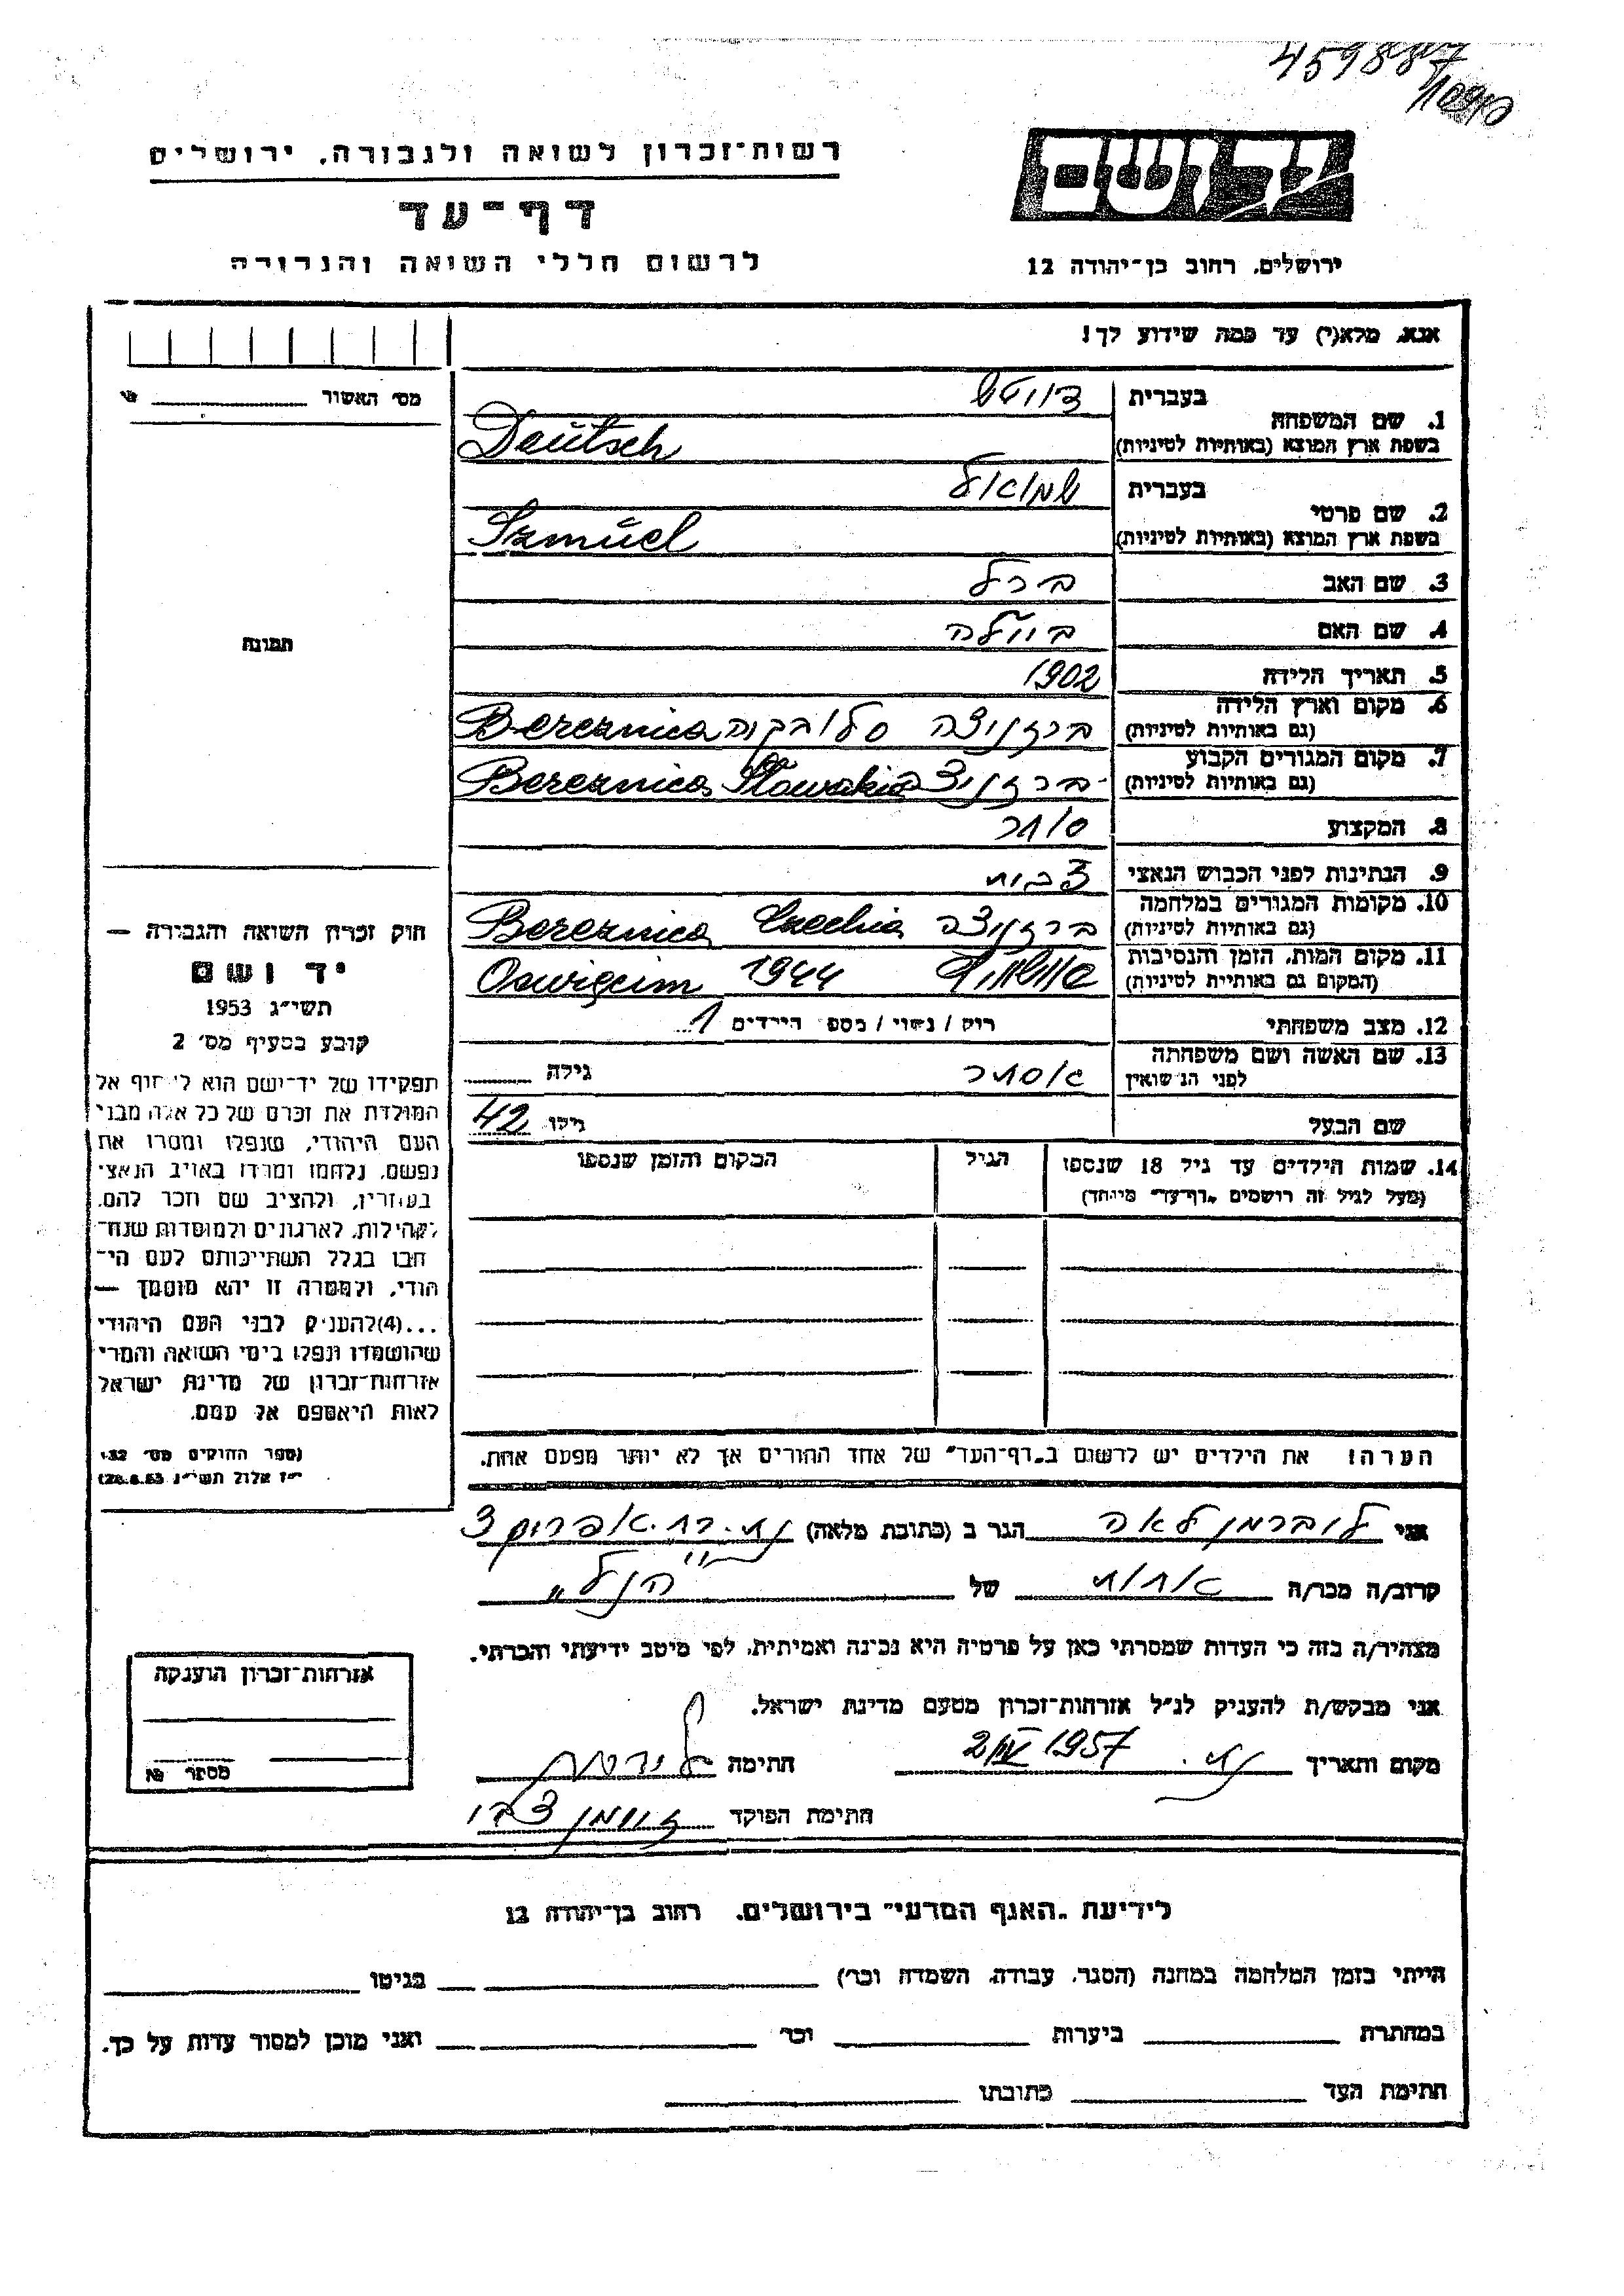 459887
רשות־זכרון לשואה ולגבורה, ירושלים
יד ושם
דף־עד
לרשום חללי השואה והגבורה
ירושלים, רחוב בן־יהודה 12
אנא, מלא(י) עד כמה שידוע לך!
מס׳ האשור
1. שם המשפחה
בעברית דויטש
בשפת ארץ המוצא (באותיות לטיניות) Deutsch
2. שם פרטי
בעברית שמואל
בשפת ארץ המוצא (באותיות לטיניות) Szmuel
3. שם האב ברל
4. שם האם ביילה
5. תאריך הלידה 1902
6. מקום וארץ הלידה
(גם באותיות לטיניות) ברזניצה סלובקיה Bereznica
7. מקום המגורים הקבוע
(גם באותיות לטיניות) ברזניצה Bereznica Slowakia
8. המקצוע סוחר
9. הנתינות לפני הכבוש הנאצי צכית
10. מקומות המגורים במלחמה
(גם באותיות לטיניות) ברזניצה Bereznica Czechia
11. מקום המות, הזמן והנסיבות
(המקום גם באותיית לטיניות) אושוויץ Oswięcim 1944
12. מצב משפחתי רווק / נשוי / מספר הילדים 1
13. שם האשה ושם משפחתה
לפני הנשואין אסתר גילה
שם הבעל גילו 42
14. שמות הילדים עד גיל 18 שנספו
(מעל לגיל זה רושמים „דף־עד״ מיוחד)
הגיל
המקום והזמן שנספו
תמונה
חוק זכרון השואה והגבורה —
יד ושם
תשי״ג 1953
קובע בסעיף מס׳ 2
תפקידו של יד־ושם הוא לאסוף אל
המולדת את זכרם של כל אלה מבני
העם היהודי, שנפלו ומסרו את
נפשם, נלחמו ומרדו באויב הנאצי
בעוזריו, ולהציב שם וזכר להם,
לקהילות, לארגונים ולמוסדות שנח־
רבו בגלל השתייכותם לעם הי־
הודי, ולמטרה זו יהא מוסמך —
...(4)להעניק לבני העם היהודי
שהושמדו ונפלו בימי השואה והמרי
אזרחות־זכרון של מדינת ישראל
לאות היאספם אל עמם.
(ספר החוקים מס׳ 132,
י״ז אלול תשי״ג 28.8.53)
הערה! את הילדים יש לרשום ב„דף־העד״ של אחד ההורים אך לא יותר מפעם אחת.
אני ליברמן לאה הגר ב (כתובת מלאה)
קרוב/ה מכר/ה אחות של „הנ״ל״
מצהיר/ה בזה כי העדות שמסרתי כאן על פרטיה היא נכונה ואמיתית, לפי מיטב ידיעתי והכרתי.
אני מבקש/ת להעניק לנ״ל אזרחות־זכרון מטעם מדינת ישראל.
מקום ותאריך 2/IV 1957 חתימה
חתימת הפוקד
אזרחות־זכרון הוענקה
מספר
לידיעת „האגף המדעי״ בירושלים, רחוב בן־יהודה 12
הייתי בזמן המלחמה במחנה (הסגר, עבודה, השמדה וכו׳) בגיטו
במחתרת ביערות וכו׳ ואני מוכן למסור עדות על כך.
חתימת העד כתובתו